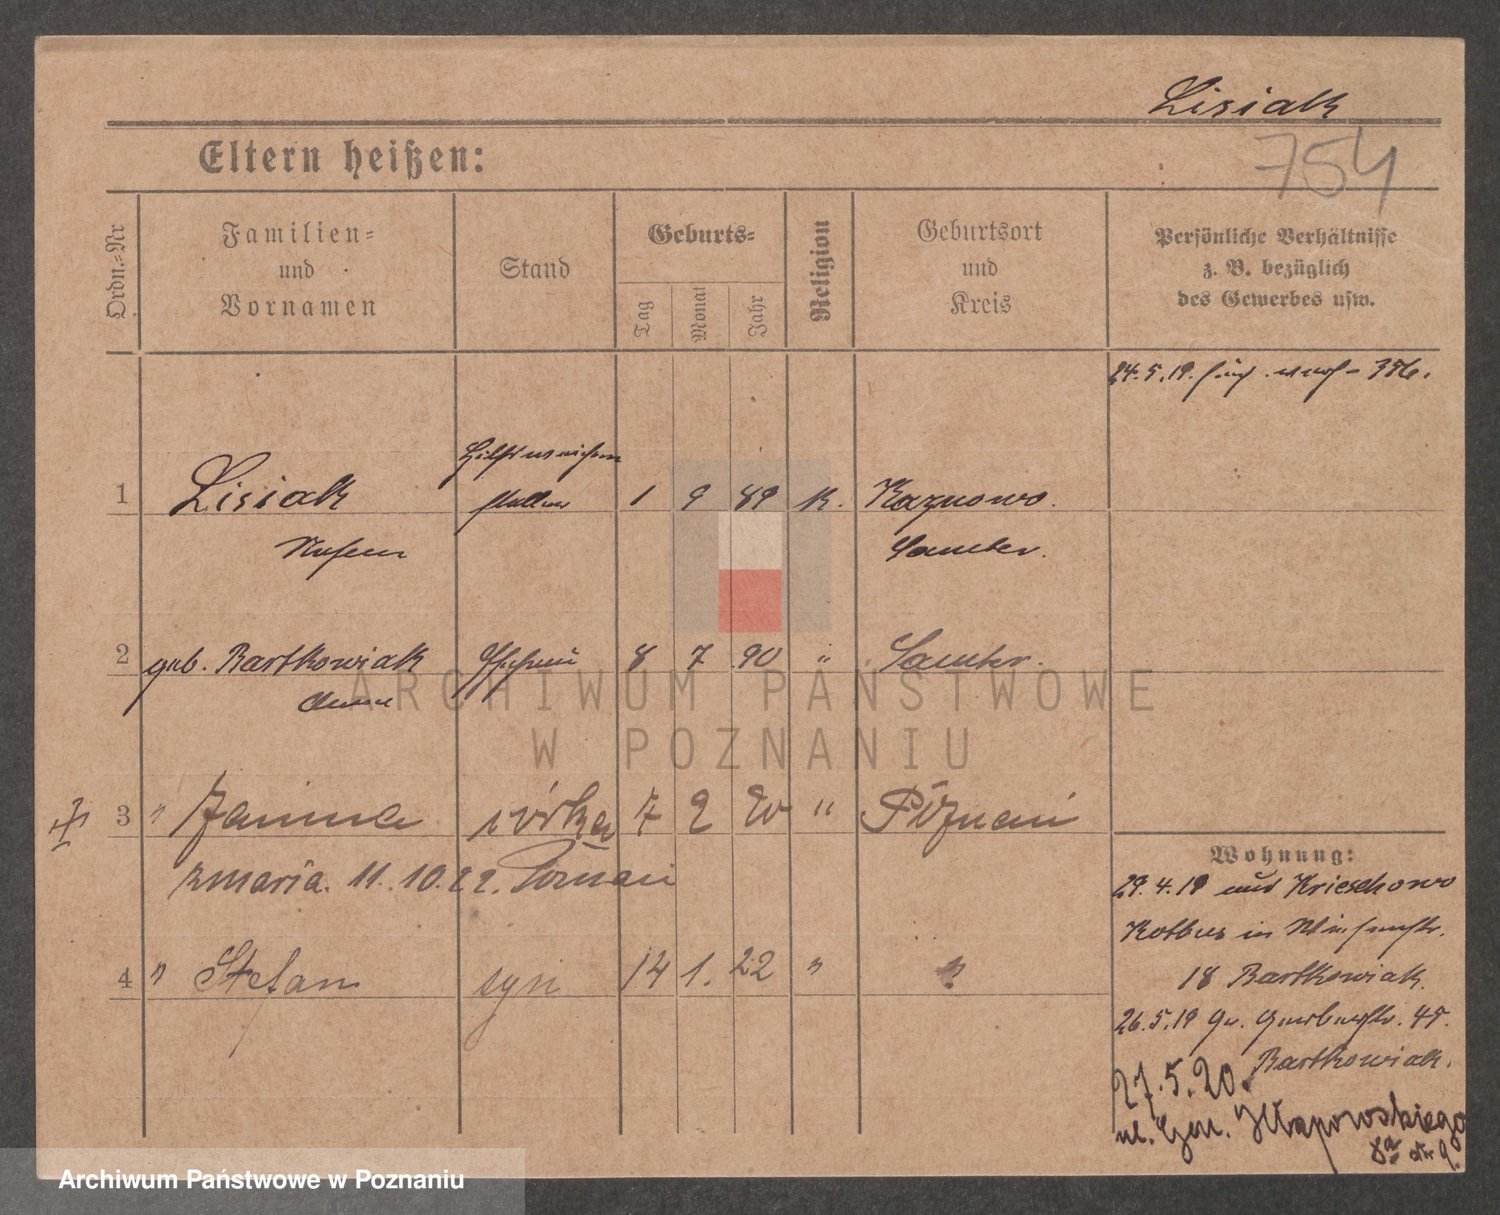 Lisiak
754
Eltern heißen:
Ordn.-Nr.
Familien-
und
Vornamen
Stand
Geburts-
Tag
Monat
Jahr
Religion
Geburtsort
und
Kreis
Persönliche Verhältnisse
z. B. bezüglich
des Gewerbes usw.
24.5.19.
1 Lisiak 1 9 89 K. Kaznowo.
Samter.
2 geb. Bartkowiak Ehefrau 8 7 90 " Samter.
ARCHIWUM PAŃSTWOWE
W POZNANIU
3 " Janina córka 7 2 20 " Poznań
zmarła. 11.10.22. Poznań
4 " Stefan syn 14 1. 22 " "
Wohnung:
29.4.19 aus Krieschowo
Kotbus in
18 Bartkowiak.
26.5.19 45.
Bartkowiak.
27.5.20.
ul. Gen. Chłapowskiego
8a 9.
Archiwum Państwowe w Poznaniu